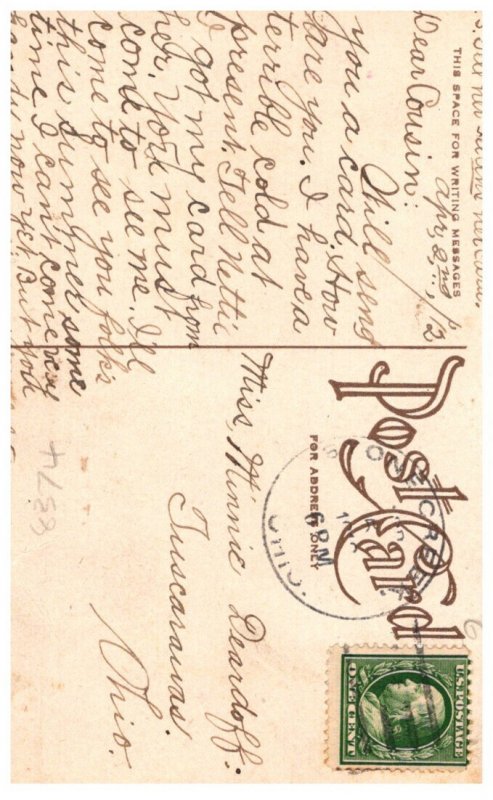 THIS SPACE FOR WRITING MESSAGES
Apr, 2nd, '12
Dear Cousin:
Will send
you a card. How
are you. I have a
terrible cold at
present. Tell Nettie
I got my card from
her. You must
come to see me. I'll
come to see you folks
this summer some
time I can't come
now yet. But you
her
Post Card
FOR ADDRESS ONLY
ONE CREEK
6 PM
OHIO.
Miss, Minnie Deardoff.
Tuscarawas.
Ohio.
U.S. POSTAGE
ONE CENT